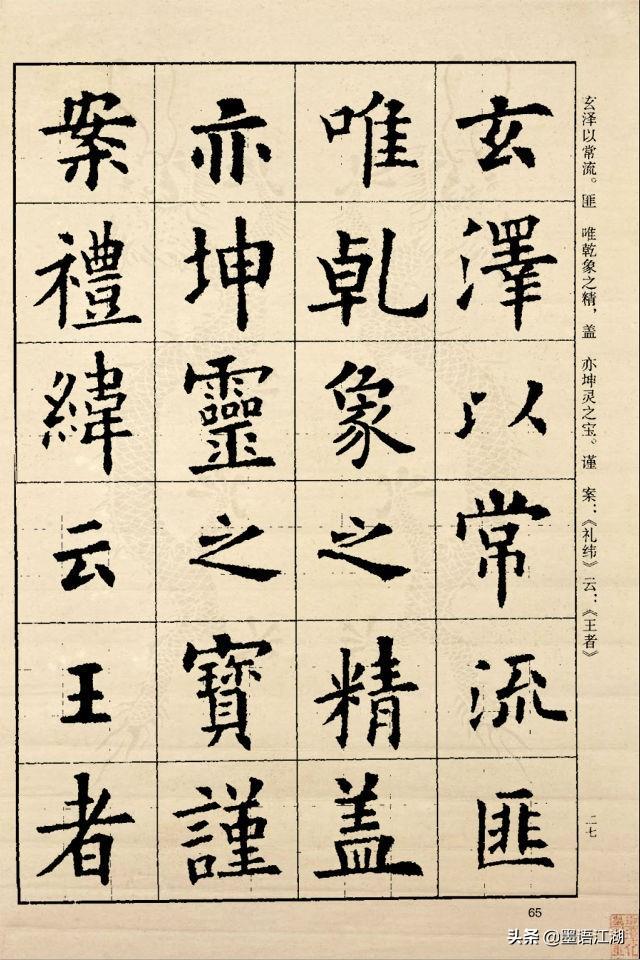 玄澤以常流匪
唯乹象之精盖
亦坤靈之寶謹
案禮緯云王者
玄泽以常流。匪 唯乾象之精，盖 亦坤灵之宝。谨 案：《礼纬》云：《王者》
二七
65
头条 @墨语江湖